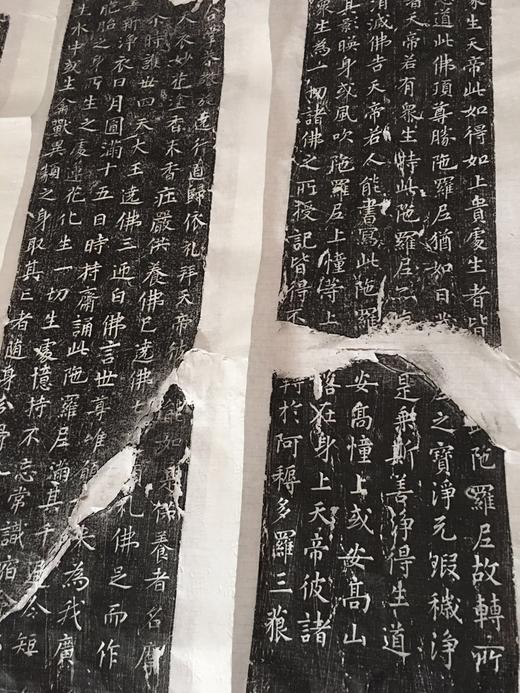 眾生天帝此如得如上貴處生者皆 陀羅尼故轉所
惡道此佛頂尊勝陀羅尼猶如日 之寶淨无瑕穢淨
者天帝若有眾生持此陀羅尼亦 是乘斯善淨得生道
消滅佛告天帝若人能書寫此陀羅 安高幢上或安高山
其影暎身或風吹陀羅尼上幢等上 落在身上天帝彼諸
眾生為一切諸佛之所授記皆得不 於阿耨多羅三藐
於遠行道歸依礼拜天帝彼 能如是供養者名摩
大衣妙花塗香末香莊嚴供養佛已遶佛七 礼佛足而作
尒時護世四天大王遶佛三迊白佛言世尊唯願 来為我廣
斯淨衣日月圓滿十五日時持齋誦此陀羅尼滿其千遍令短
胞胎之身所生之處蓮花化生一切生處憶持不忘常識宿
水中或生禽獸異類之身取其亡者隨身分骨